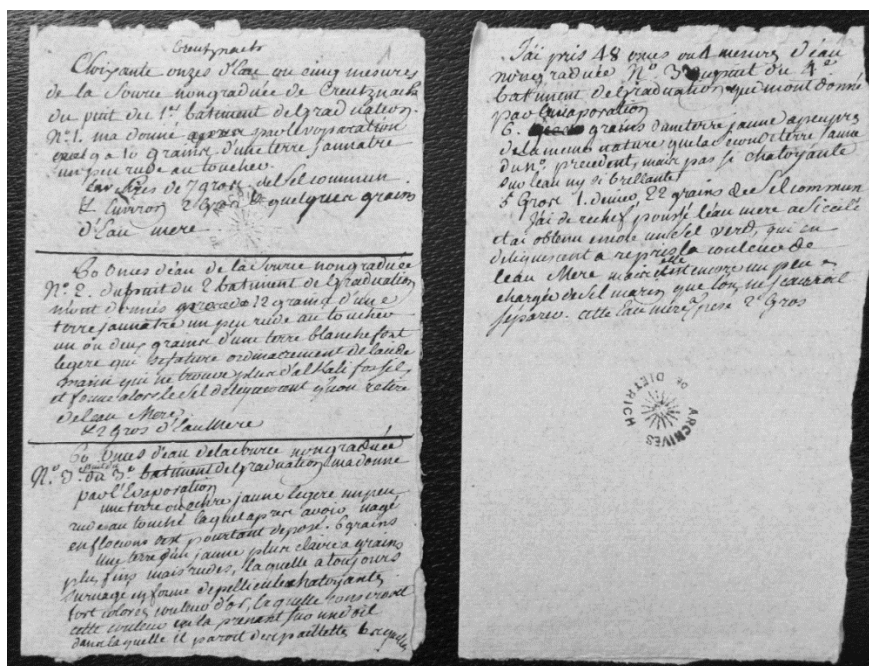 Creutznach
Soixante onzes d'Eau ou cinq mesures
de la Source nongraduée de Creutznach
du puit du 1er batiment de graduation.
N° 1. ma donné par levoporation
9 a 10 grains d'une terre jaunatre
un peu rude au toucher
Pres de 7 gros de sel commun
& Environ 2 Gros & quelques grains
d'Eau mere
60 Onces d'eau de la Source nongraduée
N° 2. du puit du 2 batiment de Graduation
mont donnés 12 grains d'une
terre jaunatre un peu rude au toucher
un ou deux grains d'une terre blanche fort
legere qui
marin qui ne trouve plus d'alkali fossil,
et forme alors le sel deliquescent qu'on retire
de leau Mere.
& 2 Gros d'Eau Mere
60 Onces d'eau de la Source nongraduée
N° 3. puit du 3e batiment de graduation ma donné
par l'Evaporation
une terre ou ochre jaune legere un peu
rude au touché laquel apres avoir nagé
en flocons sest pourtant deposé. 6 grains
Une terre d'un jaune plus claire a grains
plus fins mais rudes, laquelle a toujours
surnagé en forme de pellicule chatoyante
fort colorée couleur d'or, laquelle
cette couleur en la prenant sur un doit
dans laquelle il paroit des paillettes
J'ai pris 48 onces ou 4 mesures d'eau
nongraduée N° 3 du puit du 4e
batiment de graduation qui mont donné
par Evaporation
6. grains d'une terre jaune a peu pres
de la meme nature que la seconde terre jaune
du N° precedent, mais pas si chatoyante
sur leau ny si brillante
5 Gros 1. demi, 22 grains de Sel commun
J'ai de rechef poussé l'eau mere a siccité
et ai obtenu encore un Sel verd, qui en
deliquescent a repris la couleur de
leau Mere mais elle est encore un peu
chargée de Sel marin que lon ne scauroit
séparer. cette Eau mere pese 2 Gros
ARCHIVES
DE DIETRICH